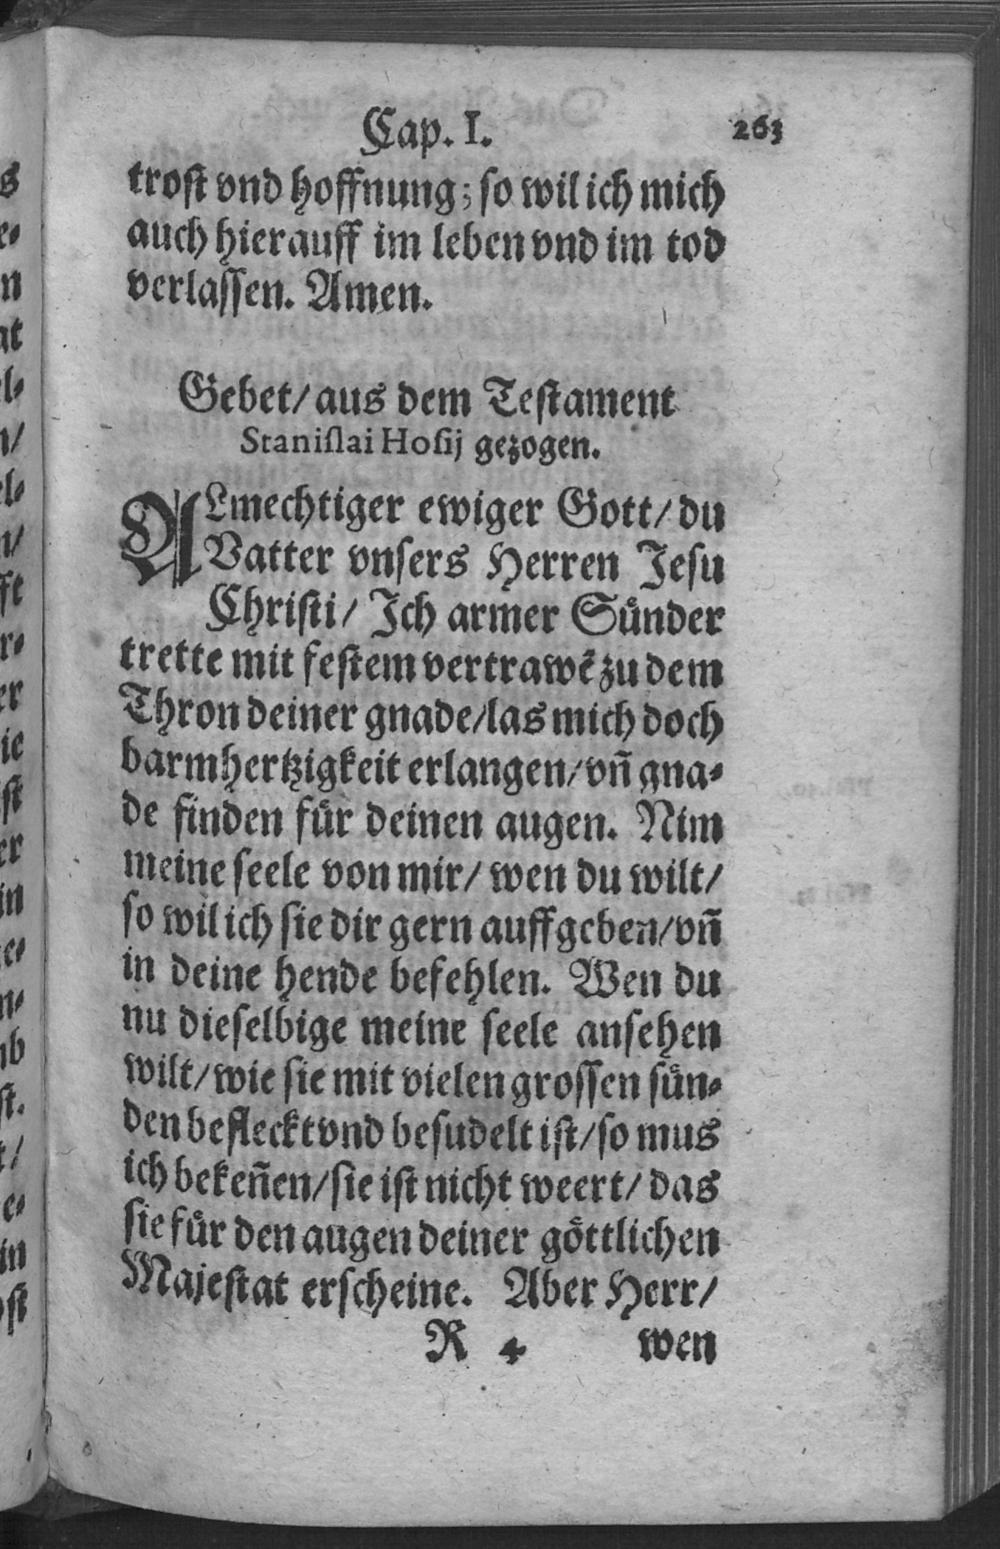 Cap. I. 263
trost vnd hoffnung; so wil ich mich
auch hierauff im leben vnd im tod
verlassen. Amen.
Gebet/ aus dem Testament
Stanislai Hosij gezogen.
ALmechtiger ewiger Gott/ du
Vatter vnsers Herren Jesu
Christi/ Ich armer Sünder
trette mit festem vertrawẽ zu dem
Thron deiner gnade/las mich doch
barmhertzigkeit erlangen/vñ gna-
de finden für deinen augen. Nim
meine seele von mir/ wen du wilt/
so wil ich sie dir gern auffgeben/vñ
in deine hende befehlen. Wen du
nu dieselbige meine seele ansehen
wilt/wie sie mit vielen grossen sün-
den befleckt vnd besudelt ist/so mus
ich bekeñen/sie ist nicht weert/ das
sie für den augen deiner göttlichen
Majestat erscheine. Aber Herr/
R 4 wen